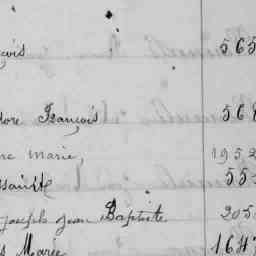 çois 565
dore François 568
re Marie, 1952
ssaint 555
Joseph Jean Baptiste 205
s Marie 1647